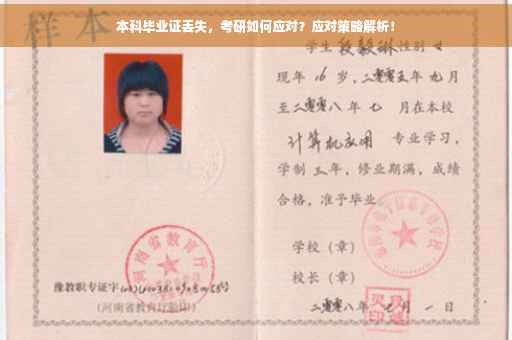 本科毕业证丢失，考研如何应对？应对策略解析！
样本
学生段毅琳性别女
现年16岁，二零零五年九月
至二零零八年七月在本校
计算机应用 专业学习，
学制三年，修业期满，成绩
合格，准予毕业
学校（章）
校长（章）
二零零八年七月一日
河南省教育厅
豫教职专证字
（河南省教育厅验印）